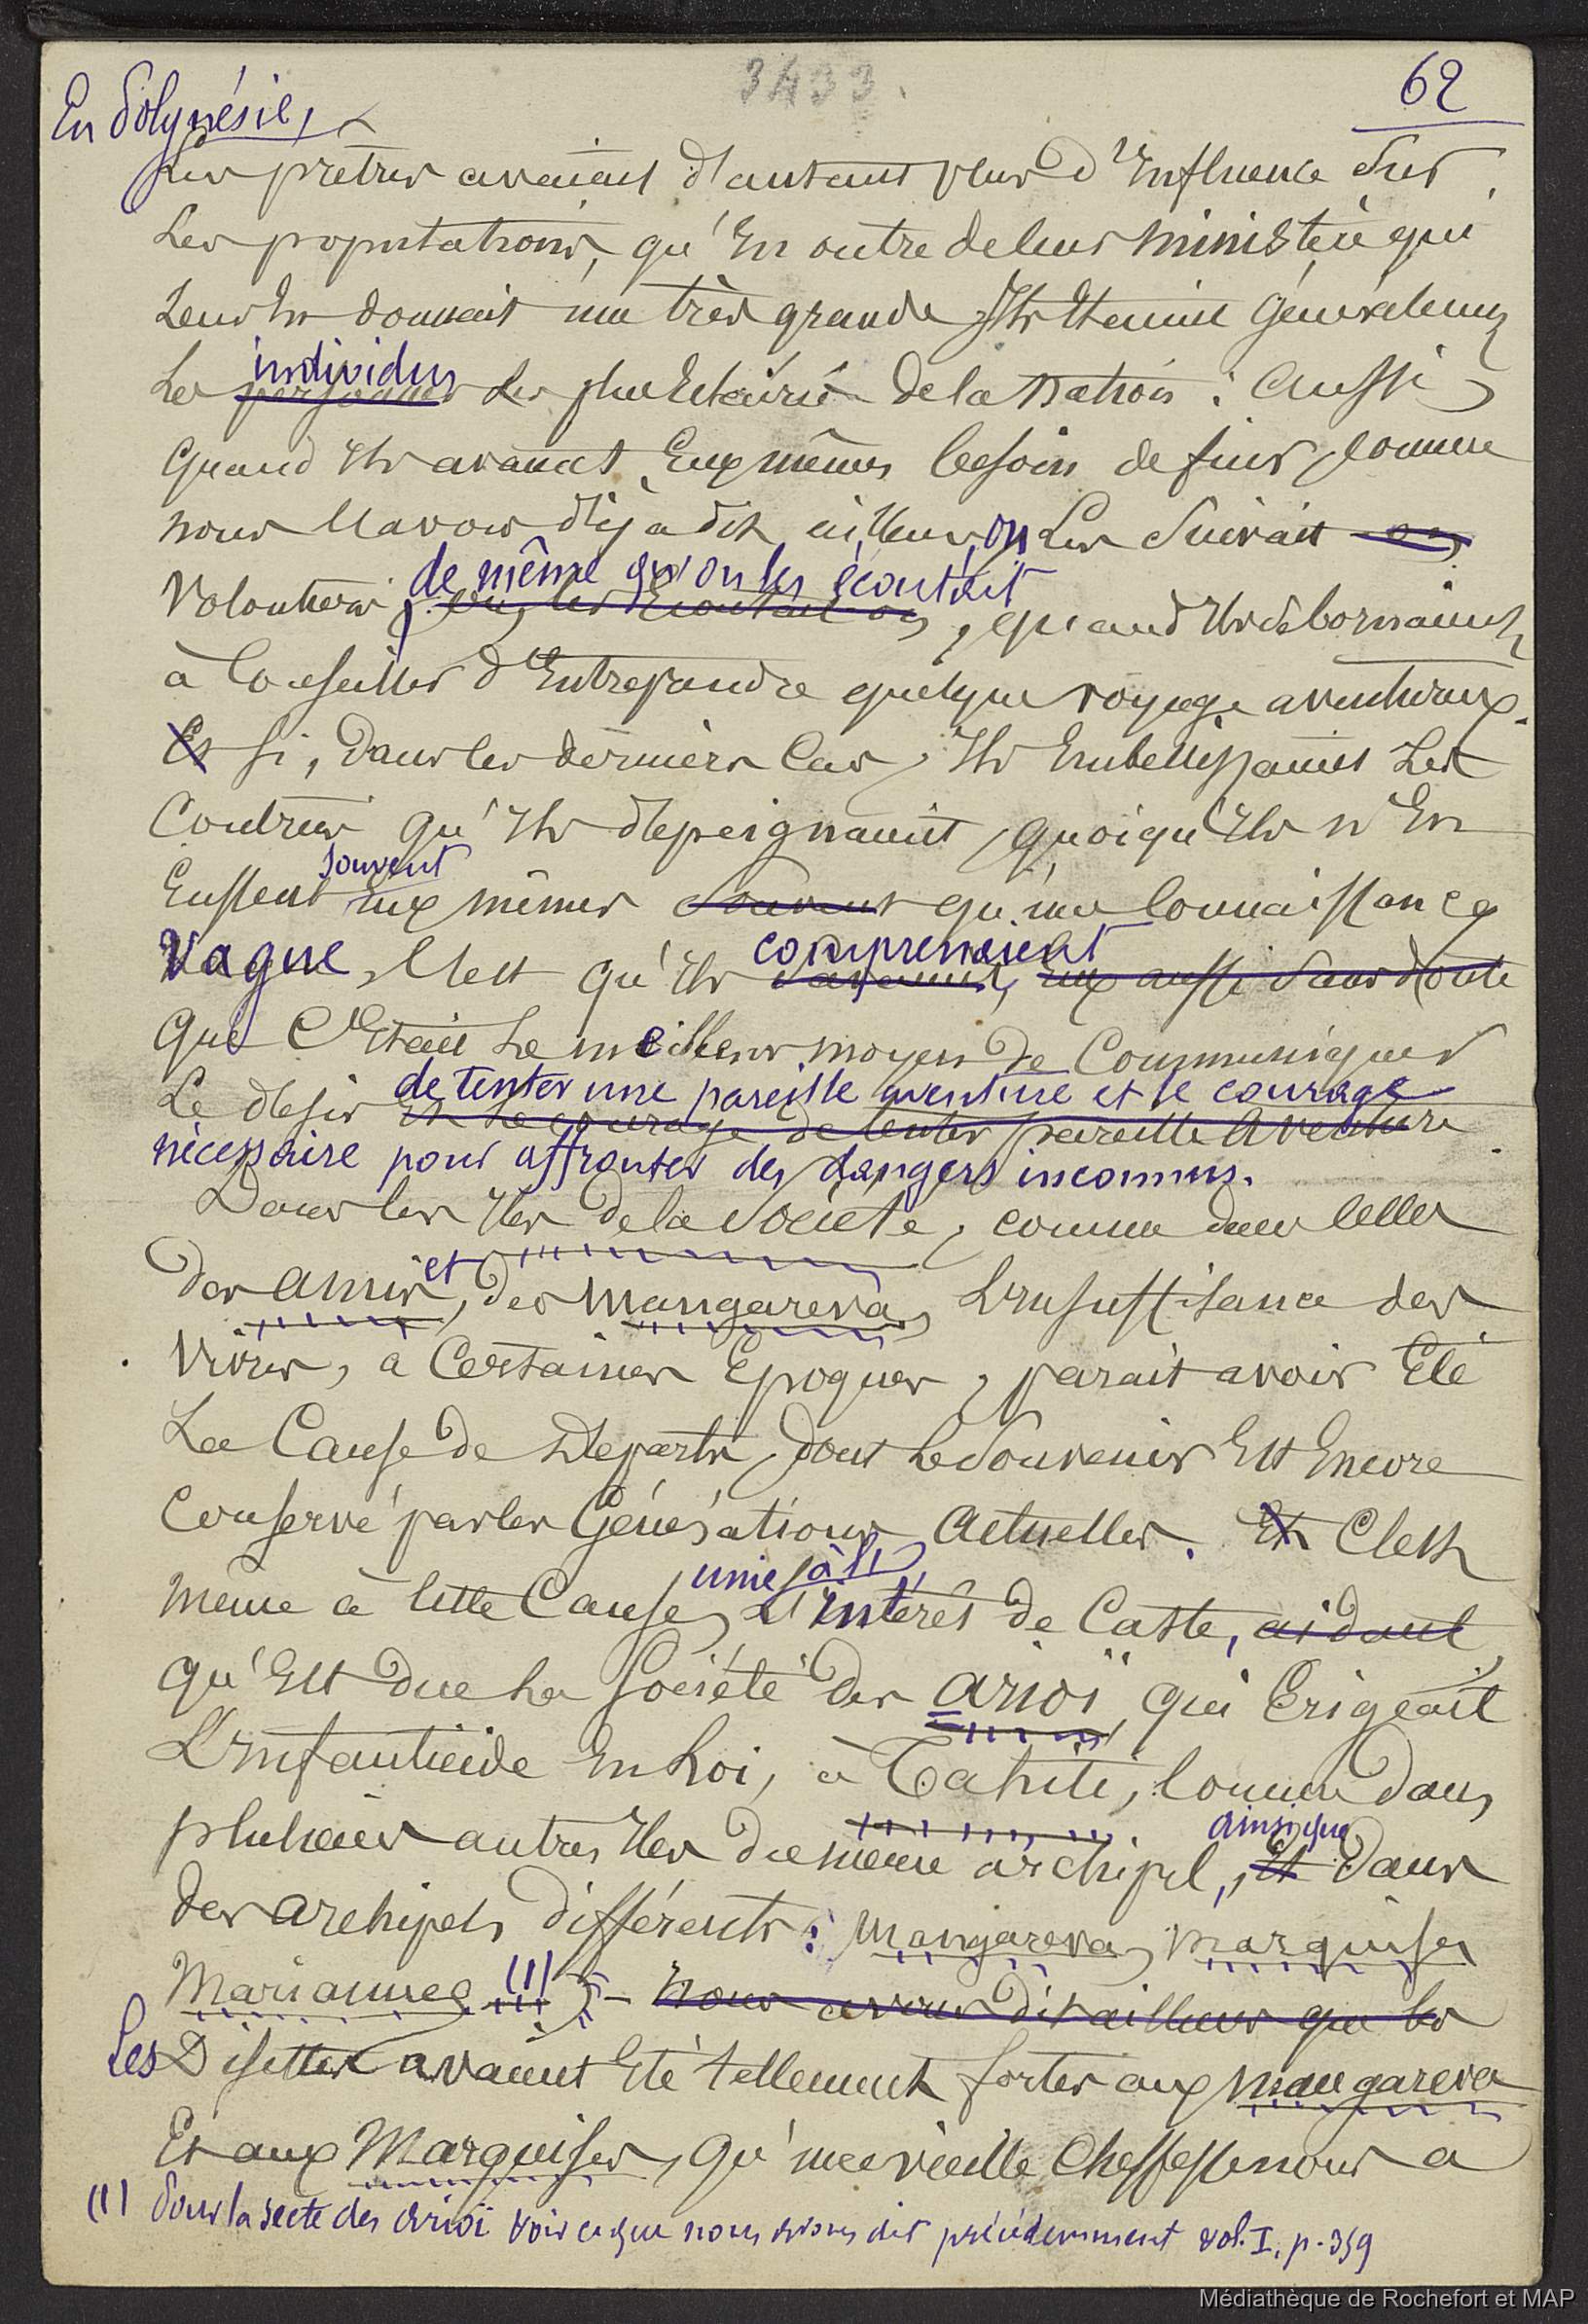 3433.
62
En Polynésie,
Les prêtres avaient d'autant plus d'influence sur
les populations, qu'en outre de leur ministère qui
leur en donnait une très grande, ils étaient généralement
individus
les personnes les plus éclairés de la nation : aussi
quand ils avaient eux mêmes besoin de fuir, comme
nous l'avons déjà dit ailleurs, on les suivait on
de même qu'on les écoutait
volontiers, les écoutait on, quand ils se bornaient
à conseiller d'entreprendre quelque voyage aventureux.
Et si, dans les derniers cas, ils embellissaient les
contrées qu'ils dépeignaient, quoiqu'ils n'en
souvent
eussent eux mêmes souvent qu'une connaissance
comprenaient
vague, c'est qu'ils savaient, eux aussi sans doute
que c'était le meilleur moyen de communiquer
de tenter une pareille aventure et le courage
le désir et le courage de tenter pareille aventure
nécessaire pour affronter des dangers inconnus.
Dans les îles de la Société, comme dans celles
et
des amis, des mangareva, l'insuffisance des
vivres, à certaines époques, parait avoir été
la cause de départs, dont le souvenir est encore
conservé par les générations actuelles. Et c'est
unie à l'
même à cette cause, l'intérêt de caste, aidant
qu'est due la société des arioï, qui érigeait
l'infanticide en loi, à Tahiti, comme dans
ainsi que
plusieurs autres îles du même archipel, et dans
des archipels différents : mangareva, marquises
Mariannes (1) - nous avons dit ailleurs que les
Les Disettes avaient été tellement fortes aux mangareva
et aux Marquises, qu'une vieille cheffesse nous a
(1) Pour la secte des arioï voir ce que nous avons dit précédemment vol. I, p. 359
Médiathèque de Rochefort et MAP